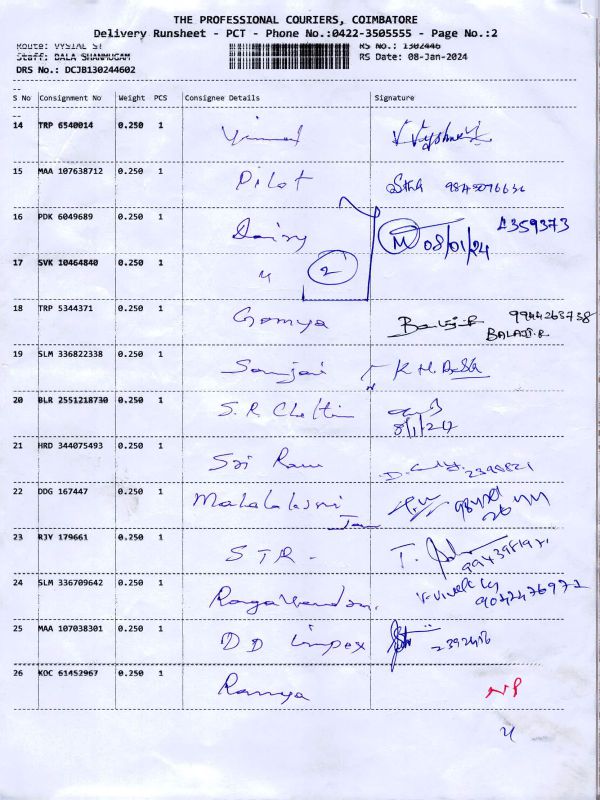 THE PROFESSIONAL COURIERS, COIMBATORE
Delivery Runsheet - PCT - Phone No.:0422-3505555 - Page No.:2
Route: VYSIAL ST RS No.: 1302446
Staff: BALA SHANMUGAM RS Date: 08-Jan-2024
DRS No.: DCJB130244602
S No Consignment No Weight PCS Consignee Details Signature
14 TRP 6540014 0.250 1
15 MAA 107638712 0.250 1 Pilot
16 PDK 6049689 0.250 1 Dairy M 08/01/24 4359373
17 SVK 10464840 0.250 1 " 2
18 TRP 5344371 0.250 1 Gomya 9944263738
BALAJI.R
19 SLM 336822338 0.250 1 Sanjai K.M.
20 BLR 2551218730 0.250 1 S.R Chettin
8/1/24
21 HRD 344075493 0.250 1 Sri Ram
22 DDG 167447 0.250 1 Mahalakshmi
23 RJV 179661 0.250 1 STR -
24 SLM 336709642 0.250 1 Ragavendra. 9042476972
25 MAA 107038301 0.250 1 DD Impex 2392416
26 KOC 61452967 0.250 1 Ramya NP